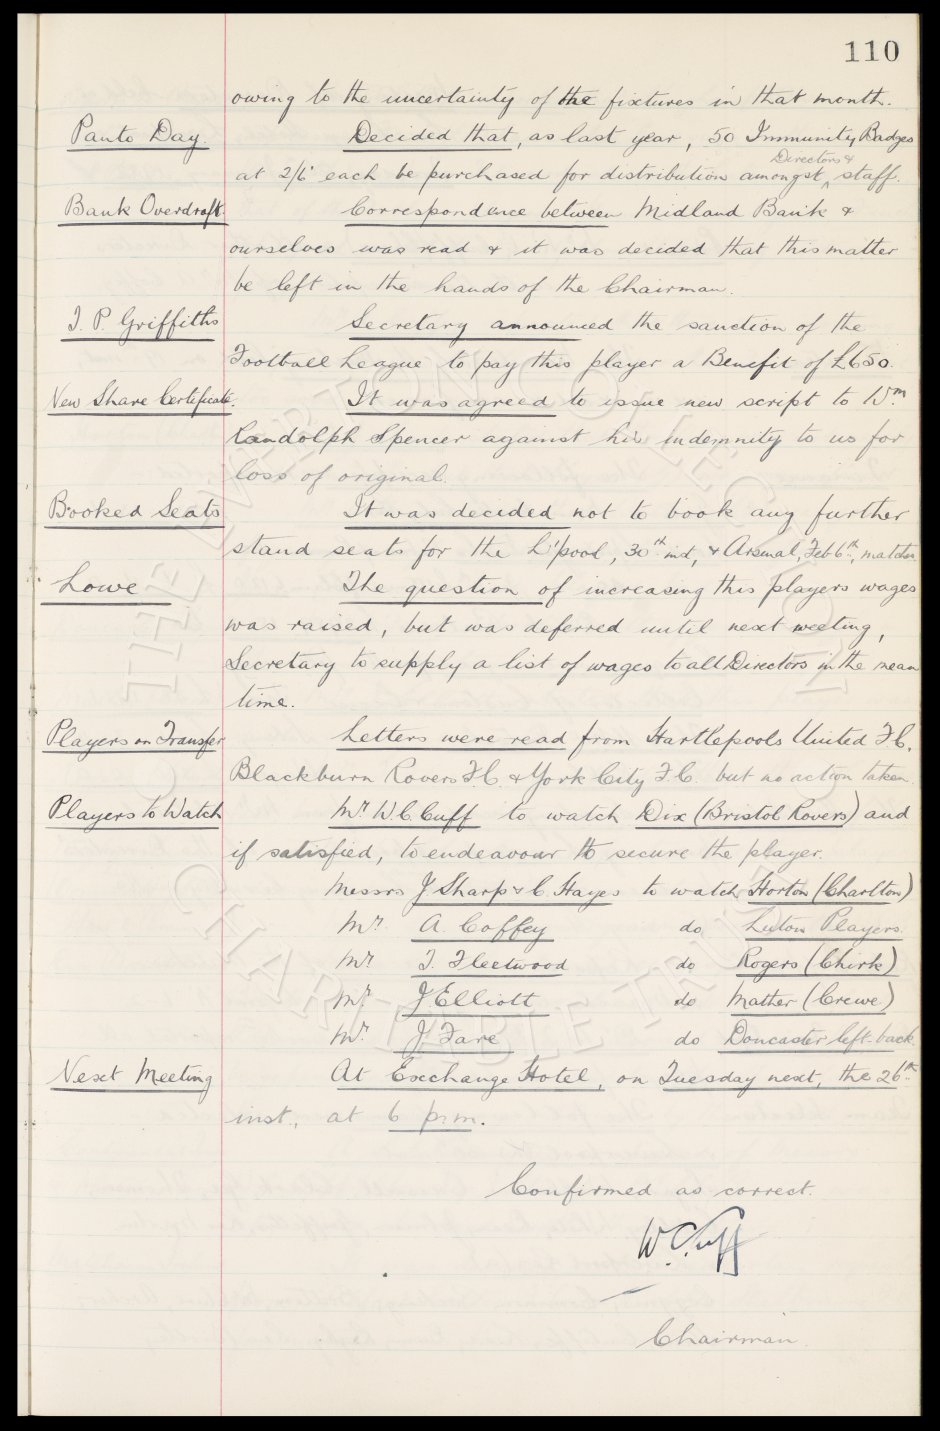 110
owing to the uncertainty of the fixtures in that month.
Panto Day. Decided that, as last year, 50 Immunity Badges
Directors &
at 2/6 each be purchased for distribution amongst ^ staff.
Bank Overdraft. Correspondence between Midland Bank &
ourselves was read & it was decided that this matter
be left in the hands of the Chairman.
T. P. Griffiths Secretary announced the sanction of the
Football League to pay this player a Benefit of £650.
New Share Certificate. It was agreed to issue new script to Wm
Randolph Spencer against his indemnity to us for
loss of original.
Booked Seats It was decided not to book any further
stand seats for the L'pool, 30th inst, & Arsenal, Feb 6th, matches.
Lowe The question of increasing this players wages
was raised, but was deferred until next meeting,
Secretary to supply a list of wages to all Directors in the mean
time.
Players on Transfer Letters were read from Hartlepools United F.C,
Blackburn Rovers F.C. & York City F.C. but no action taken.
Players to Watch Mr. W.C. Cuff to watch Dix (Bristol Rovers) and
if satisfied, to endeavour to secure the player.
Messrs J Sharp & C. Hayes to watch Horton (Charlton)
Mr. A. Coffey do Luton Players.
Mr. T. Fleetwood do Rogers (Chirk)
Mr. J. Elliott do Mather (Crewe)
Mr. J. Fare do Doncaster left-back.
Next Meeting At Exchange Hotel, on Tuesday next, the 26th
inst., at 6 p.m.
Confirmed as correct.
W.C. Cuff
Chairman
THE EVERTON COLLECTION
CHARITABLE TRUST